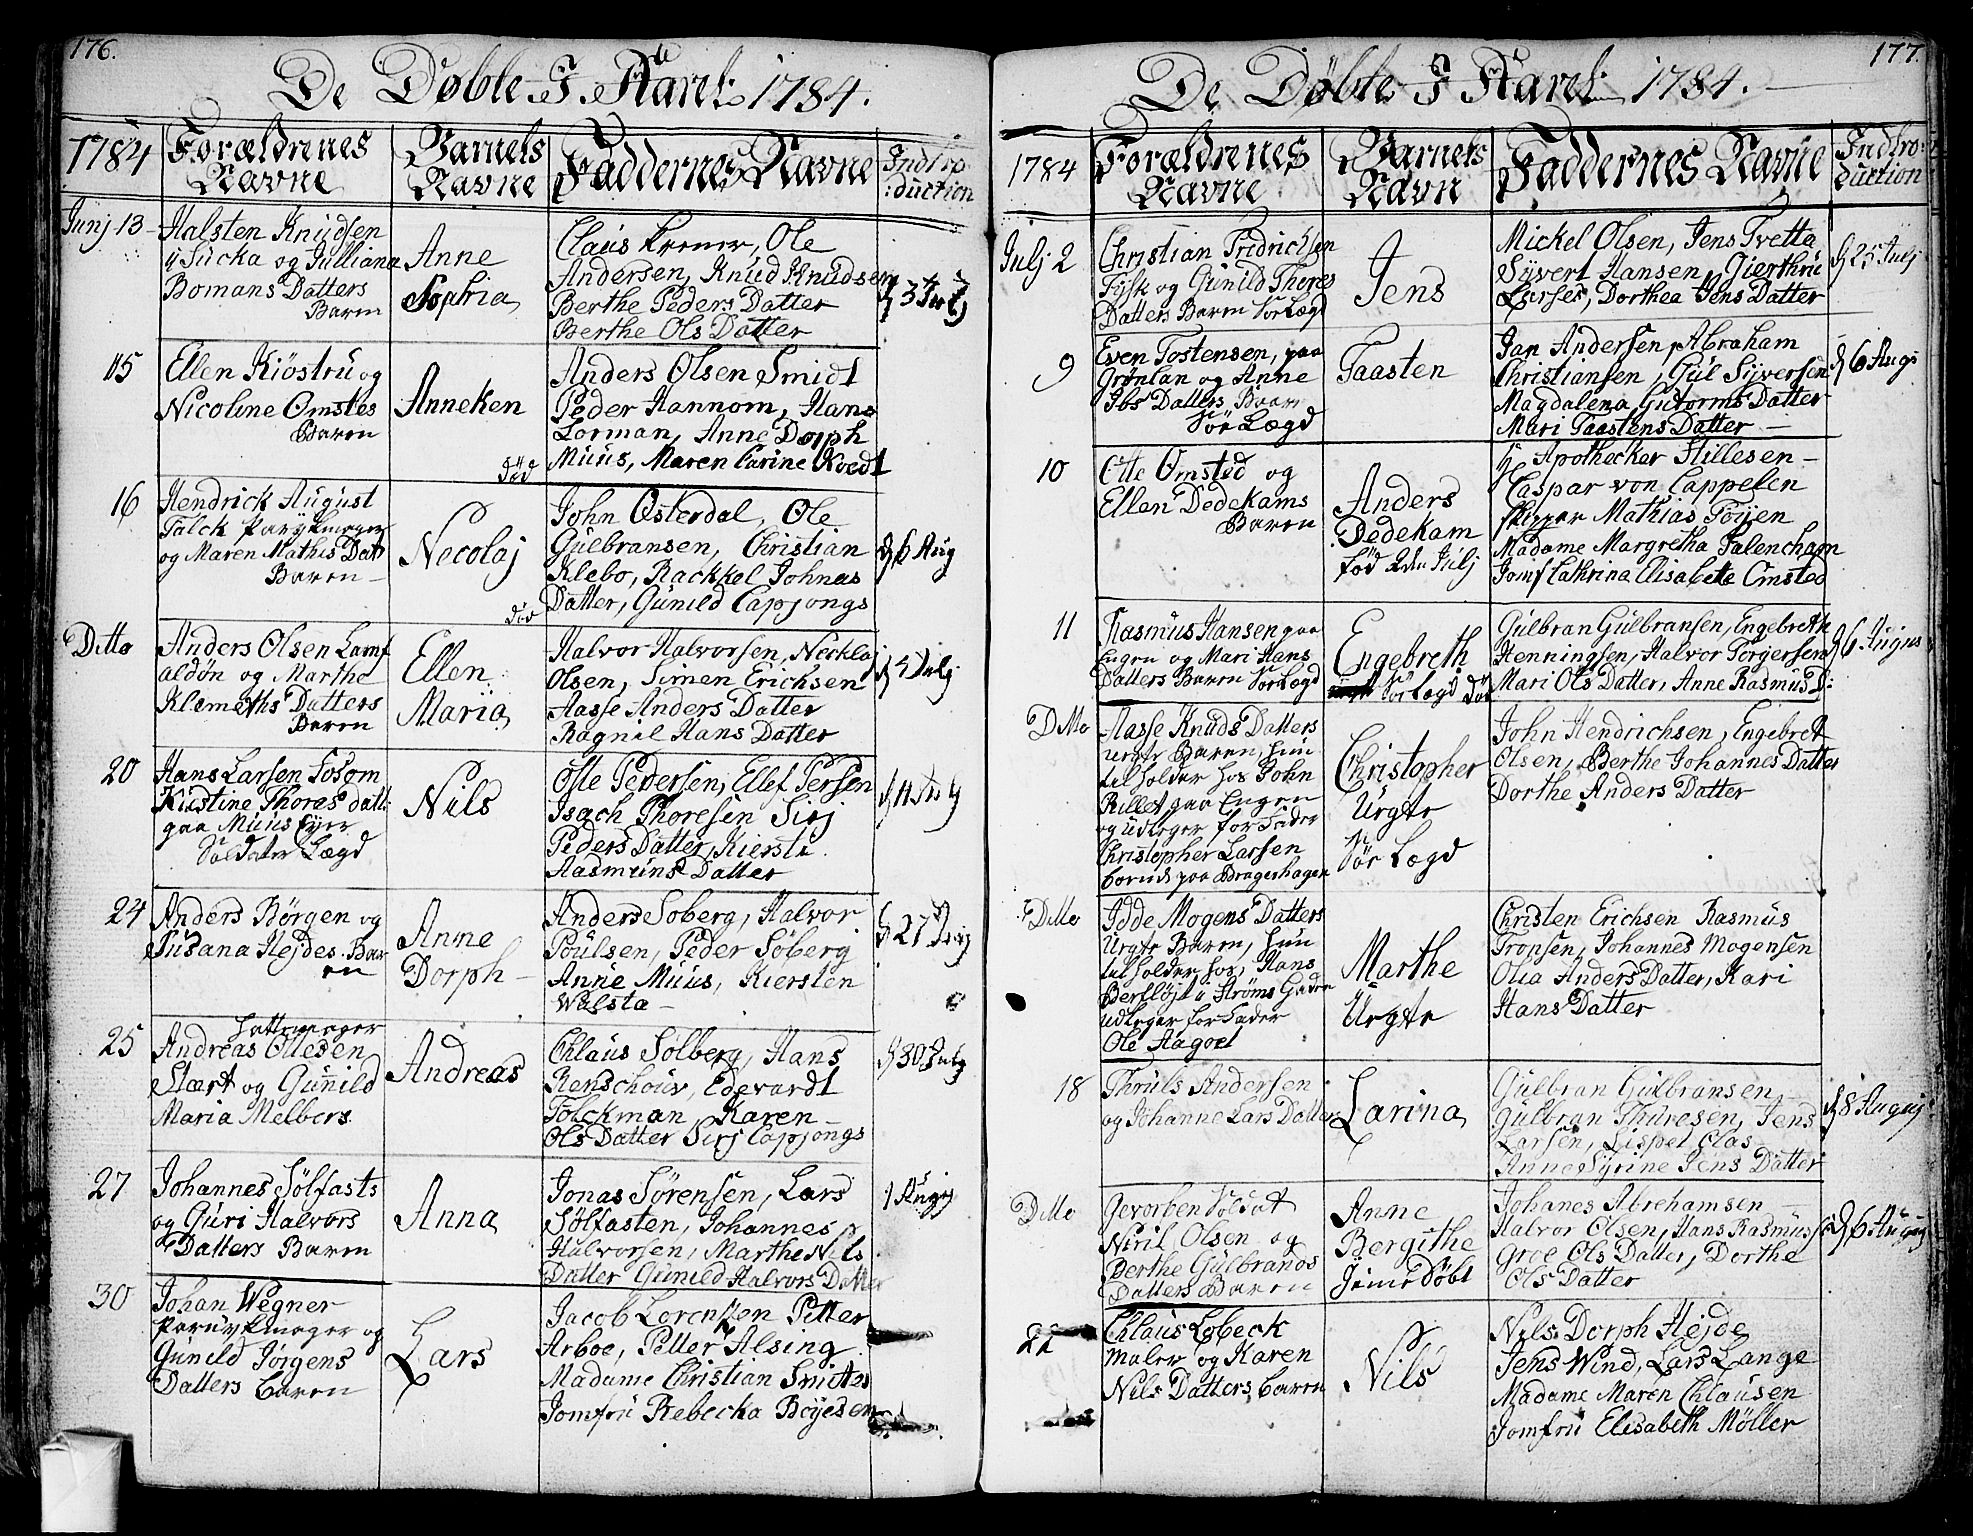 176.
De Døbte I Aaret 1784.
1784
Forældrenes Navne
Barnets Navne
Faddernes Navne
Indtro:duction
Junj 13
Halsten Knudsen
og Julliana
Bomans Datters
Barn
Anne
Sophia
Claus Kremer, Ole
Andersen, Knud Knudsen
Berthe Peders Datter
Berthe Ols Datter
15
Ellen Kiöstru og
Nicoline Omsteds
Barn
Anneken
død
Anders Olsen Smidt
Peder Hannom, Hans
Lorman, Anne Dorph
Muus, Maren Carine Koedt
16
Hendrick August
Falck Parykmager
og Maren Mathis Datt
Barn
Necolaj
død
John Osterdal, Ole
Gulbransen, Christian
Klebo, Rackkel Johnas
Datter, Gunild Capjongs
d 6 Aug
Ditto
Anders Olsen Lamf
aldøn og Marthe
Klemeths Datters
Barn
Ellen
Maria
Halvor Halvorsen, Necklaj
Olsen, Simen Erichsen
Aasse Anders Datter
Ragnil Hans Datter
20
Hans Larsen Fosom
Kirstine Thores datt
paa Muus Eyer
Soldater Lægd
Nils
Offe Pedersen, Ellef Persen
Isach Thoresen Sirj
Peders Datter, Kiersti
Aasmuns Datter
24
Anders Børgen og
Susana Hejdes Bar
en
Anne
Dorph
Anders Soberg, Halvor
Poulsen, Peder Søberg
Anne Muus, Kiersten
Walsta
25
Hattemager
Andreas Ollesen
Stært og Gunild
Maria Melbers
Andreas
Chlaus Solberg, Hans
Renschouv, Edevardt
Folckman, Karen
Ols Datter Sirj Capjongs
d 30 July
27
Johannes Sølfasts
og Guri Halvors
Datters Barn
Anna
Jonas Sørensen, Lars
Sølfasten, Johannes
Halvorsen, Marthe Nils
Datter Gunild Halvors Datter
1 Augij
30
Johan Wegner
Parüykmager og
Gunild Jørgens
Datters Barn
Lars
Jacob Lorentzen Petter
Arboe, Petter Alsing
Madame Christian Smittes
Jomfru Rebecka Boyesen
177.
De Døbte I Aaret 1784.
1784
Forældrenes Navne
Barnets Navn
Faddernes Navne
Indtro:duction
Julj 2
Christian Fridrichsen
Fosk og Gunild Thores
Datters Barn Sør Lægd
Jens
Mickel Olsen, Jens Tvetta
Syvert Hansen, Gierthru
Larses, Dorthea Jens Datter
d 25 Julj
9
Even Tostensen, paa
Grønlan og Anne
Ibs Datters Barn
Sør Lægd
Taasten
Jan Andersen, Abraham
Christiansen, Gul Syversen
Magdalena Gutorms Datter
Mari Taastens Datter
d 6 Augs
10
Otte Omsted og
Ellen Dedekams
Baren
Anders
Dedekam
fød 2den Julj
Hr Apothecker Stillesen
Caspar von Cappelen
Skipper Mathias Foyen
Madame Margretha Palencham
Jomf Cathrina Elisabete Omsted
11
Rasmus Hansen paa
Engen og Mari Hans
Datters Barn Sør Lægd
Engebreth
Sør Lægd død
Gulbran Gulbransen, Engebreth
Henningsen, Halvor Torgersen
Mari Ols Datter, Anne Rasmus D:
Ditto
Aasse Knuds Datters
Uegte Barn, hun
til holder hos John
Rillet paa Engen
og udleger for Fader
Christopher Larsen
boende paa Dragerhagen
Christopher
Uegte
Sør Lægd
John Hendrichsen, Engebret
Olsen, Berthe Johannes Datter
Dorthe Anders Datter
Ditto
Idde Mogens Datters
Uegte Barn, hun
til holder hos, Hans
Bertløjt i Strøms Gaden
udleger for Fader
Ole Aagoet
Marthe
Uegte
Christen Erichsen Rasmus
Tronsen, Johannes Mogensen
Olia Anders Datter, Kari
Hans Datter
18
Thruls Andersen
og Johanne Lars Datter
Larina
Gulbran Gulbransen,
Gulbran Thuresen, Jens
Larsen, Lispet Clas
Anne Syrine Jens Datter
d 8 Augij
Ditto
Gevorben Soldat
Niril Olsen og
Berthe Gulbrands
Datters Barn
Anne
Bergithe
Jemedøbt
Johanes Abrehamsen
Halvor Olsen, Hans Rasmus
Groe Ols Datter, Dorthe
Ols Datter
22
Chlaus Lobeck
Maler og Karen
Nels Datters Baren
Nils
Nils Dorph Hejde
Jens Wind, Lars Lange
Madame Maren Chlausen
Jomfru Elisabeth Møller